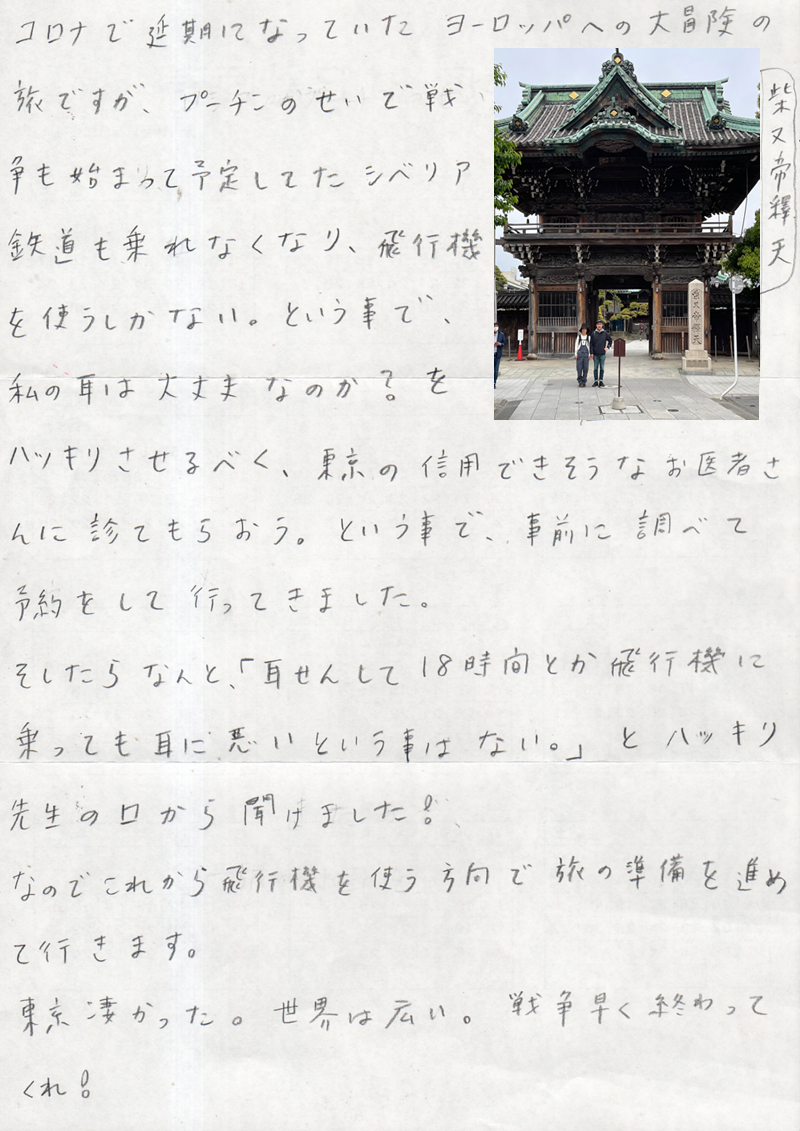 コロナで延期になっていた ヨーロッパへの大冒険の
旅ですが、プーチンのせいで戦
争も始まって予定してたシベリア
鉄道も乗れなくなり、飛行機
を使うしかない。という事で、
私の耳は大丈夫なのか?を
ハッキリさせるべく、東京の信用できそうなお医者さ
んに診てもらおう。という事で、事前に調べて
予約をして行ってきました。
そしたらなんと、「耳せんして18時間とか飛行機に
乗っても耳に悪いという事はない。」とハッキリ
先生の口から聞けました!
なのでこれから飛行機を使う方向で旅の準備を進め
て行きます。
東京凄かった。世界は広い。戦争早く終わって
くれ!
柴又帝釋天
柴又帝釋天